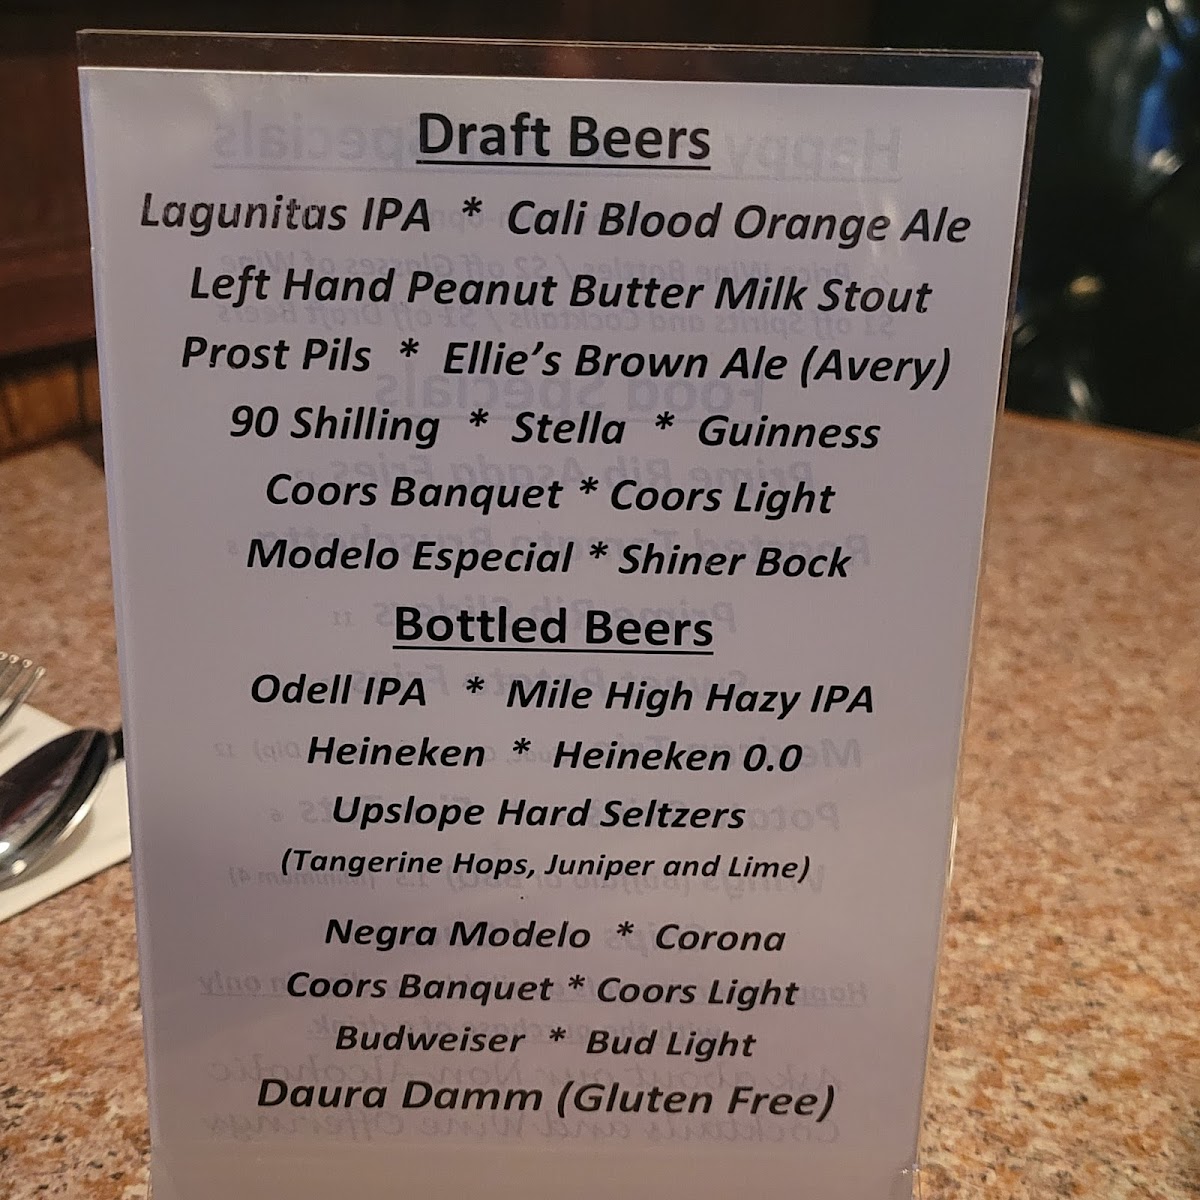 Draft Beers
Lagunitas IPA * Cali Blood Orange Ale
Left Hand Peanut Butter Milk Stout
Prost Pils * Ellie's Brown Ale (Avery)
90 Shilling * Stella * Guinness
Coors Banquet * Coors Light
Modelo Especial * Shiner Bock
Bottled Beers
Odell IPA * Mile High Hazy IPA
Heineken * Heineken 0.0
Upslope Hard Seltzers
(Tangerine Hops, Juniper and Lime)
Negra Modelo * Corona
Coors Banquet * Coors Light
Budweiser * Bud Light
Daura Damm (Gluten Free)